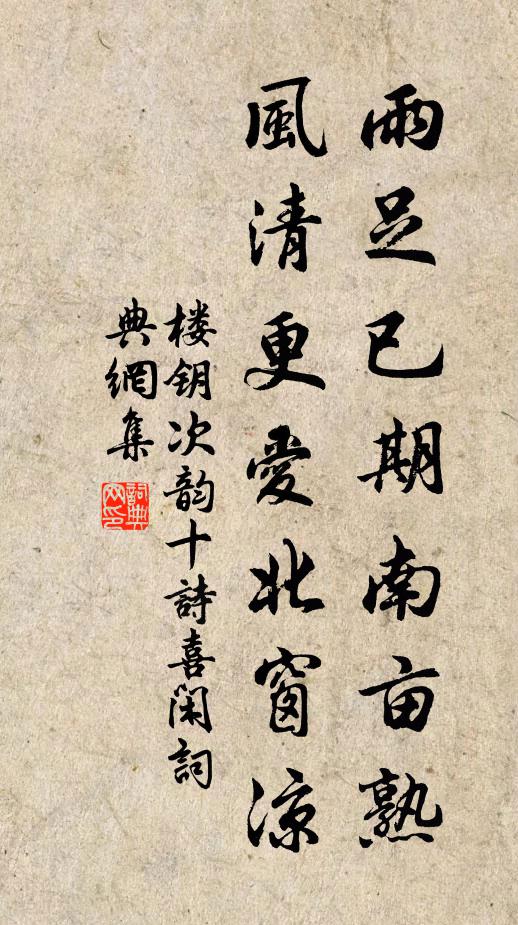 雨足已期南亩熟
風清更爱北窗涼
楼钥次韵十詩喜闲詞
典網集
詞典网印